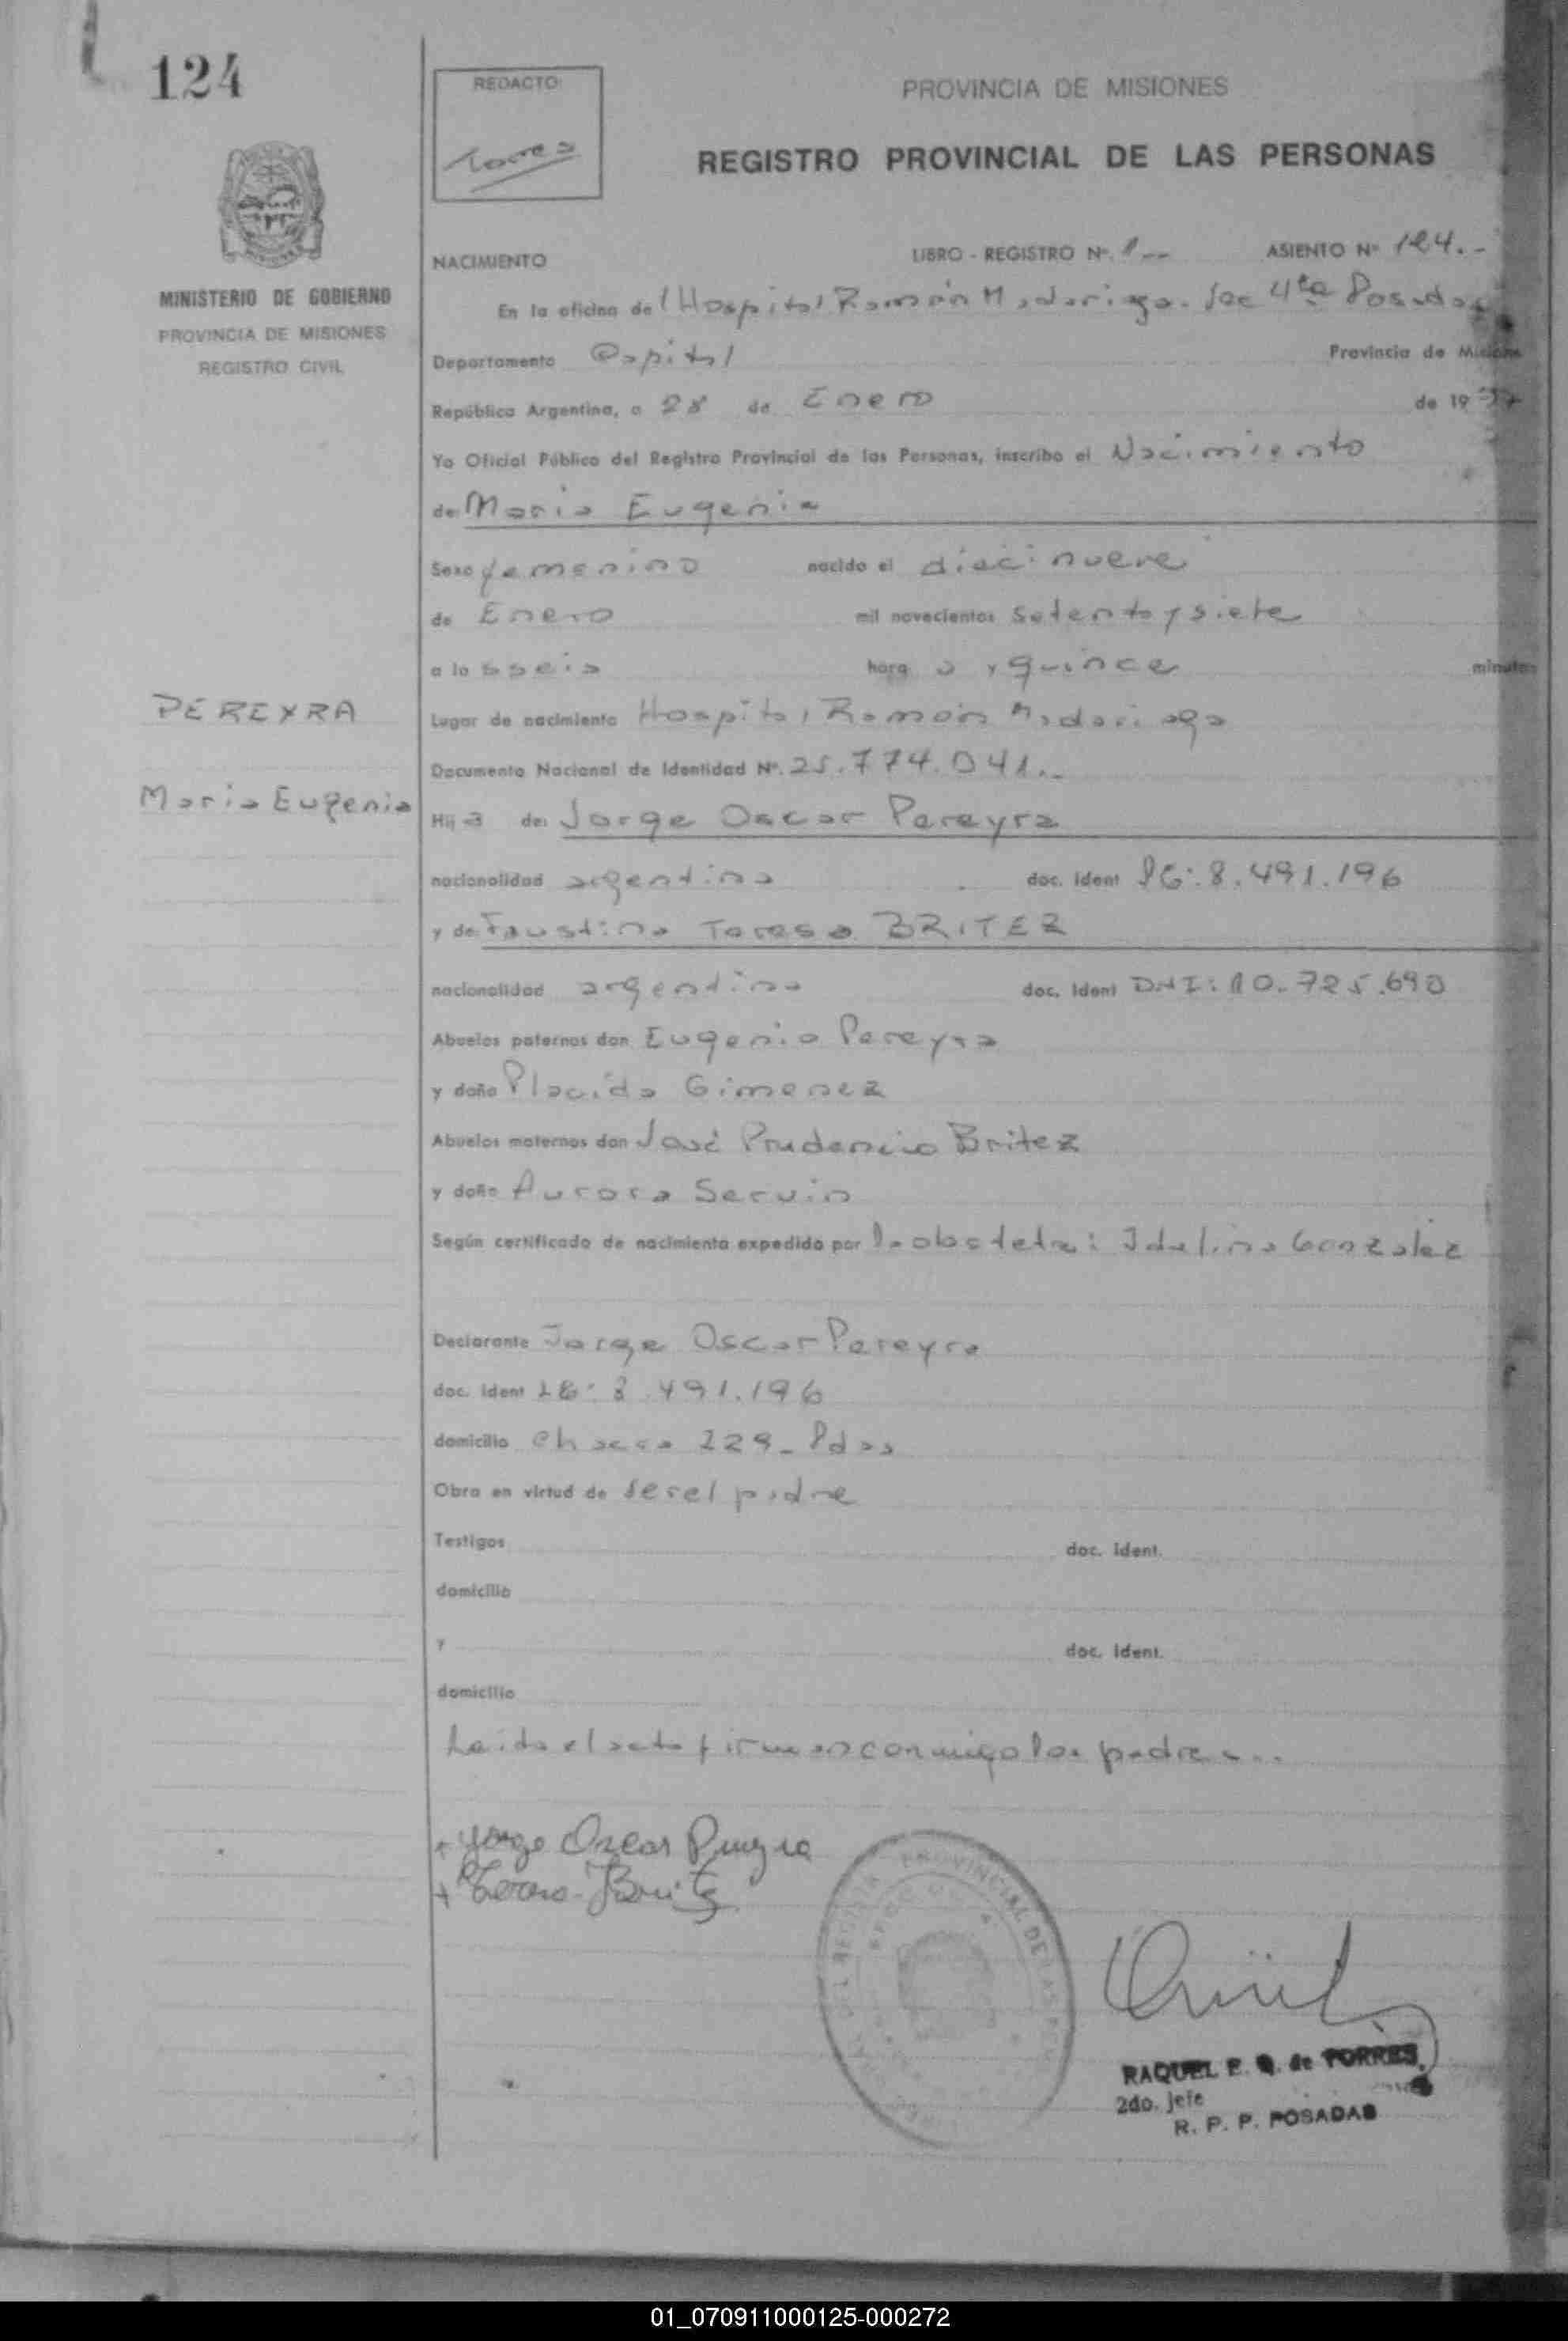 124
REDACTO:
Torres
PROVINCIA DE MISIONES
REGISTRO PROVINCIAL DE LAS PERSONAS
MINISTERIO DE GOBIERNO
PROVINCIA DE MISIONES
REGISTRO CIVIL
NACIMIENTO LIBRO - REGISTRO Nº 1 -- ASIENTO Nº 124.-
En la oficina del Hospital Ramón Madariaga. Sec 4ta Posadas
Departamento Capital Provincia de Misiones
República Argentina, a 28 de Enero de 1977
Yo Oficial Público del Registro Provincial de las Personas, inscribo el Nacimiento
de Maria Eugenia
Sexo femenino nacido el diecinueve
de Enero mil novecientos setenta y siete
a las seis hora s y quince minutos
PEREYRA
Maria Eugenia
Lugar de nacimiento Hospital Ramón Madariaga
Documento Nacional de Identidad Nº. 25.774.041.-
Hij a de: Jorge Oscar Pereyra
nacionalidad argentina doc. ident 8.491.196
y de Faustina Teresa BRITEZ
nacionalidad argentina doc. ident DNI: 10.725.690
Abuelos paternos don Eugenio Pereyra
y doña Placida Gimenez
Abuelos maternos don José Prudencio Britez
y doña Aurora Servin
Según certificado de nacimiento expedido por la obstetra: Idalina Gonzalez
Declarante Jorge Oscar Pereyra
doc. ident 8.491.196
domicilio Chacra 229_ Pdas
Obra en virtud de ser el padre
Testigos doc. ident.
domicilio
y doc. ident.
domicilio
Leida el acta firman conmigo los padres...
Jorge Oscar Pereyra
Teresa Britez
PROVINCIAL DE LAS
RAQUEL E. Q. de TORRES
2do. Jefe
R. P. P. POSADAS
01_070911000125-000272